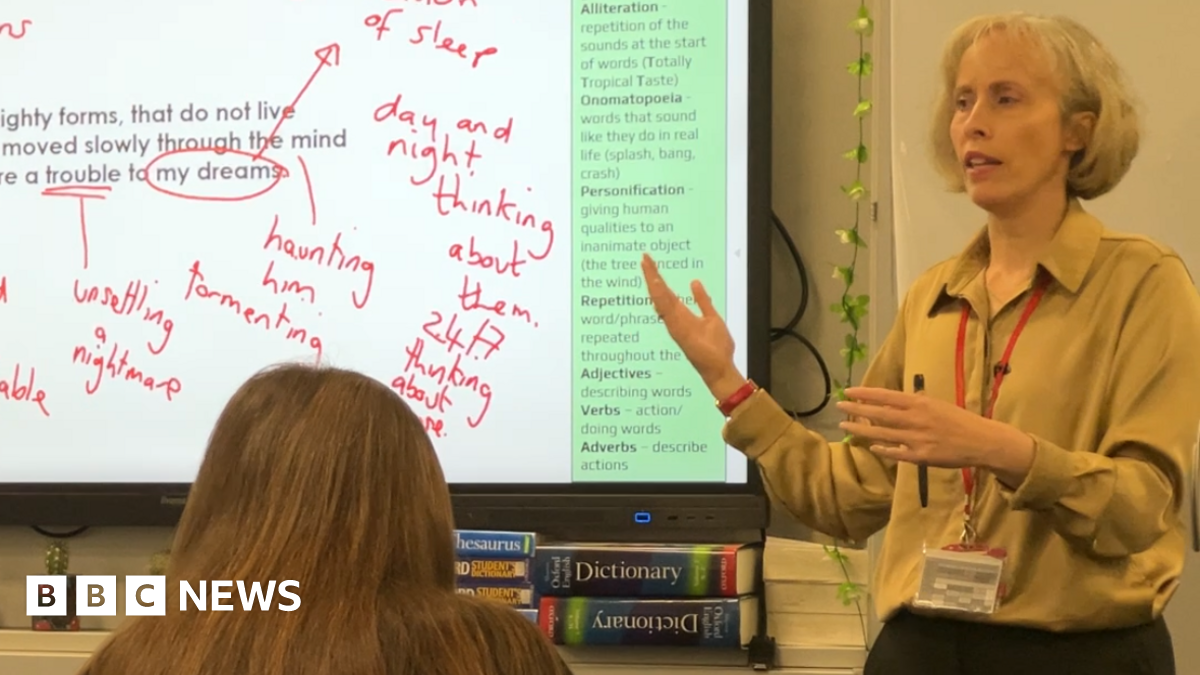 of sleep
ighty forms, that do not live
moved slowly through the mind
re a trouble to my dreams.
day and
night
thinking
about
them.
24/7
thinking
about
haunting
him
tormenting
unsettling
a
nightmare
able
Alliteration -
repetition of the
sounds at the start
of words (Totally
Tropical Taste)
Onomatopoeia -
words that sound
like they do in real
life (splash, bang,
crash)
Personification -
giving human
qualities to an
inanimate object
(the tree nced in
the wind)
Repetition
word/phrase
repeated
throughout the
Adjectives –
describing words
Verbs – action/
doing words
Adverbs – describe
actions
hesaurus
RD STUDENT'S
DICTIONARY
STUDENT'S
Oxford
English
Dictionary
OXFORD
Oxford
English
Dictionary
BBC NEWS